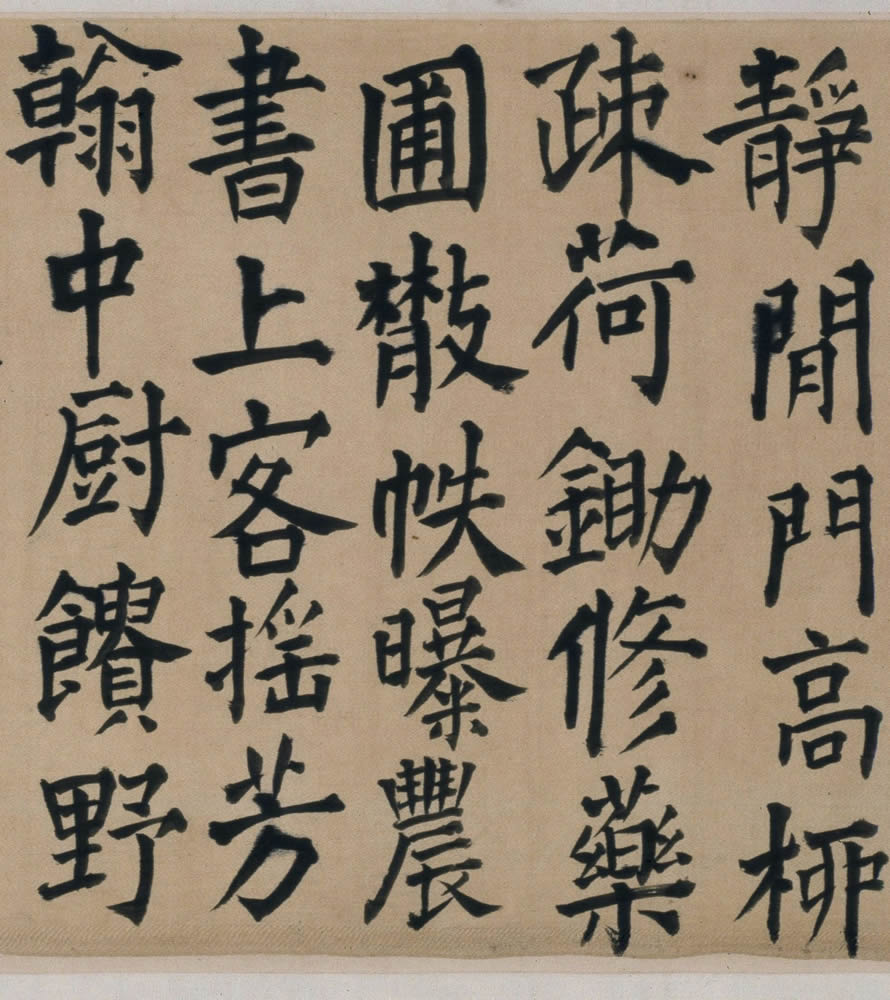 靜閒門高柳
疎荷鋤修藥
圃散帙曝農
書上客摇芳
翰中厨饋野